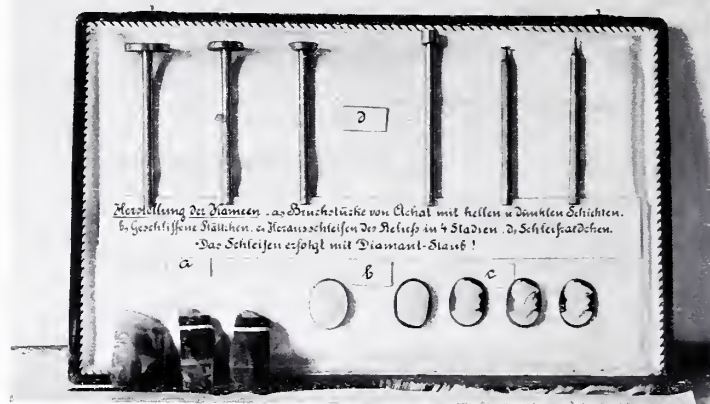 d
Herstellung der Kameen. a, Bruchstücke von Achat mit hellen u dunklen Schichten.
b, Geschliffene Plättchen. c, Herausschleifen des Reliefs in 4 Stadien. d, Schleifrädchen.
Das Schleifen erfolgt mit Diamant-Staub!
a b c